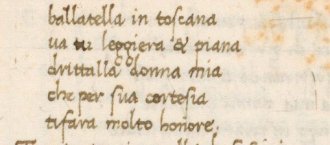 ballatella in toscana
va tu leggiera & piana
drittalla donna mia
che per sua cortesia
tifara molto honore,